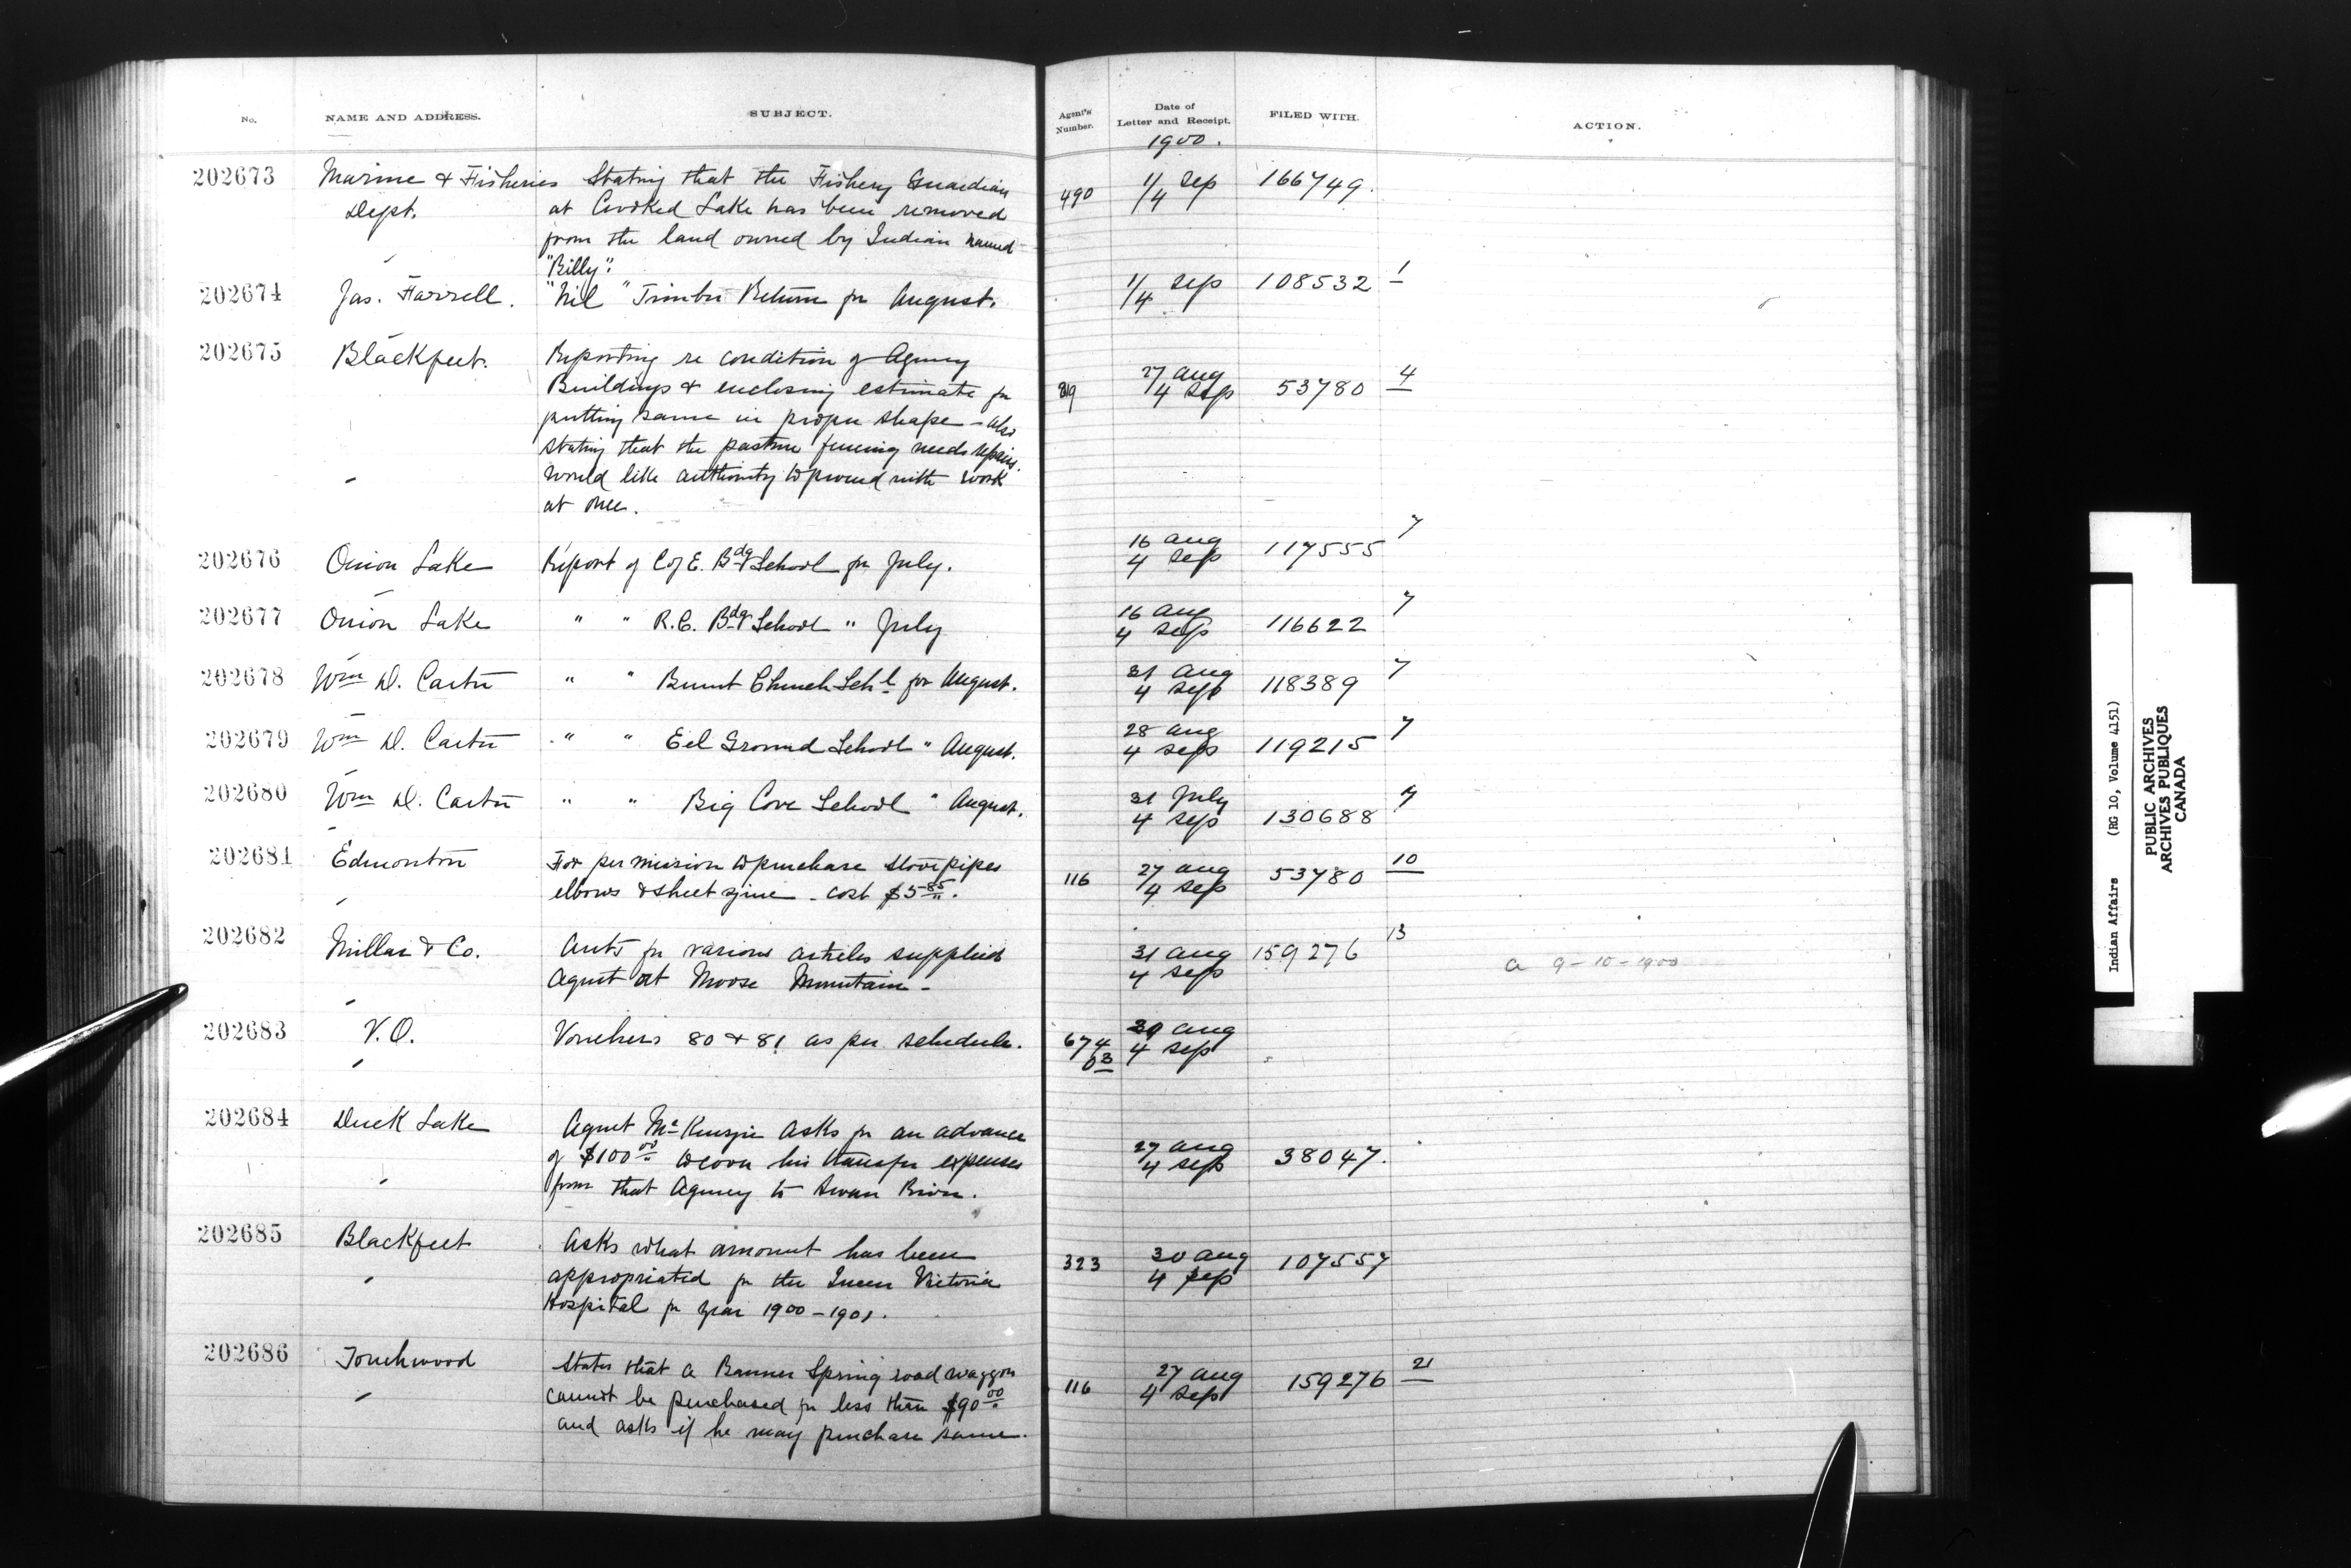 No. NAME AND ADDRESS. SUBJECT. Agent's Number. Date of Letter and Receipt. FILED WITH. ACTION.
1900.
202673 Marine & Fisheries Stating that the Fishery Guardian 490 1/4 Sep 166749.
Dept. at Crooked Lake has been removed
from the land owned by Indian named
"Billy".
202674 Jas. Farrell. "Nil" Timber Return for August. 1/4 Sep 108532 1
202675 Blackfeet. Reporting re condition of Agency
Buildings & enclosing estimate for 319 27 Aug 4 Sep 53780 4
putting same in proper shape - also
stating that the pasture fencing needs repairs.
Would like authority to proceed with work
at once.
202676 Onion Lake Report of C of E. Bdg School for July. 16 Aug 4 Sep 117555 7
202677 Onion Lake " " R.C. Bdg School " July 16 Aug 4 Sep 116622 7
202678 Wm D. Carter " " Burnt Church Schl for August. 31 Aug 4 Sep 118389 7
202679 Wm D. Carter " " Eel Ground School " August. 28 Aug 4 Sep 119215 7
202680 Wm D. Carter " " Big Cove School " August. 31 July 4 Sep 130688 7
202681 Edmonton For permission to purchase stovepipes 116 27 Aug 4 Sep 53780 10
elbows & sheet zinc - cost $5.85.
202682 Millar & Co. Accts for various articles supplied 31 Aug 4 Sep 159276 13
Agent at Moose Mountain - a 9-10-1900
202683 V.O. Vouchers 80 & 81 as per schedule. 674 03 Aug 4 Sep
202684 Duck Lake Agent McKenzie asks for an advance
of $100.00 to cover his transfer expenses 27 Aug 4 Sep 38047.
from that Agency to Swan River.
202685 Blackfeet Asks what amount has been
appropriated for the Queen Victoria 323 30 Aug 4 Sep 107557
Hospital for year 1900-1901.
202686 Touchwood States that a Banner Spring road waggon
cannot be purchased for less than $90.00 116 27 Aug 4 Sep 159276 21
and asks if he may purchase same.
Indian Affairs (RG 10, Volume 4151)
PUBLIC ARCHIVES
ARCHIVES PUBLIQUES
CANADA